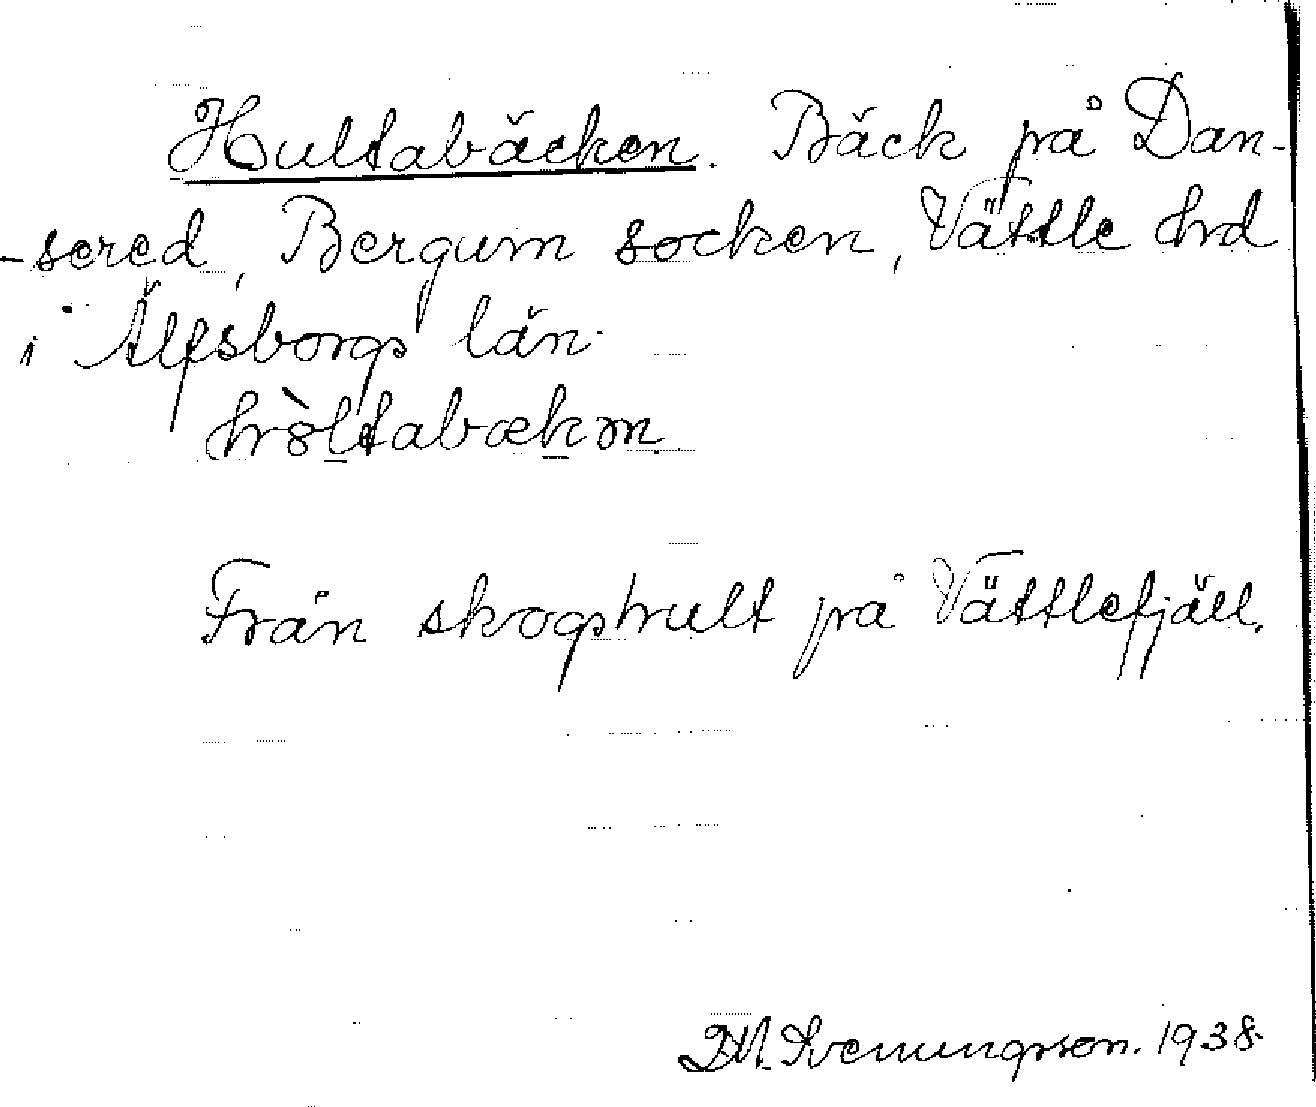 Hultabäcken. Bäck på Dan-
-sered, Bergum socken, Vättle hrd
i Älfsborgs län.
hòltabækən
Från skogshult på Vättlefjäll.
Svenungsson. 1938